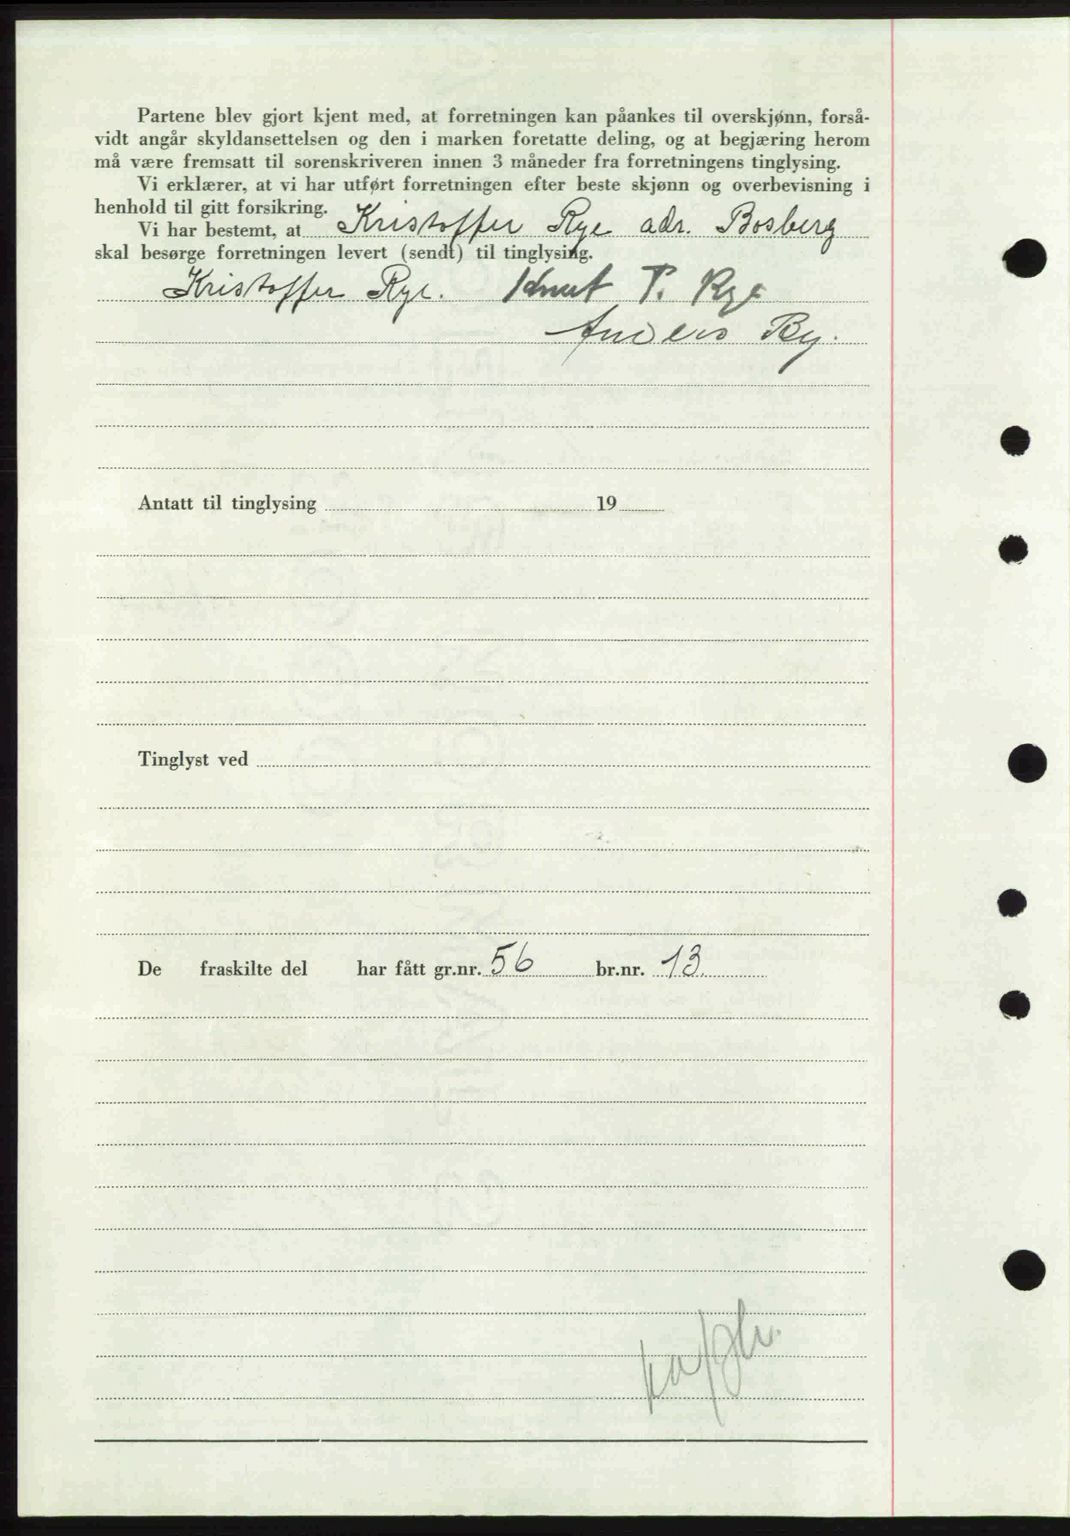 Partene blev gjort kjent med, at forretningen kan påankes til overskjønn, forså-
vidt angår skyldansettelsen og den i marken foretatte deling, og at begjæring herom
må være fremsatt til sorenskriveren innen 3 måneder fra forretningens tinglysing.
Vi erklærer, at vi har utført forretningen efter beste skjønn og overbevisning i
henhold til gitt forsikring.
Vi har bestemt, at Kristoffer Rye adr. Bosberg
skal besørge forretningen levert (sendt) til tinglysing.
Kristoffer Rye. Knut P. Rye
Anders By.
Antatt til tinglysing 19
Tinglyst ved
De fraskilte del har fått gr.nr. 56 br.nr. 13.